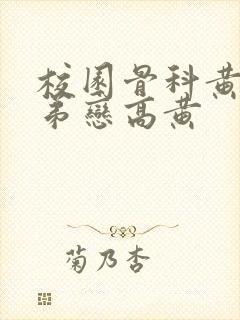 校園骨科黃
弟戀高黄
菊乃杏